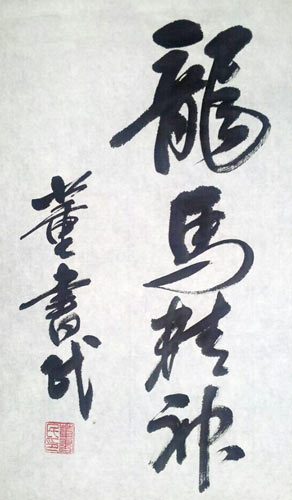 龍馬精神
董書民